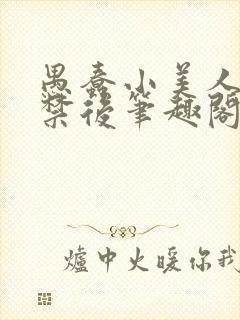 愚蠢小美人
禁後筆趣閣
爐中火暖你我